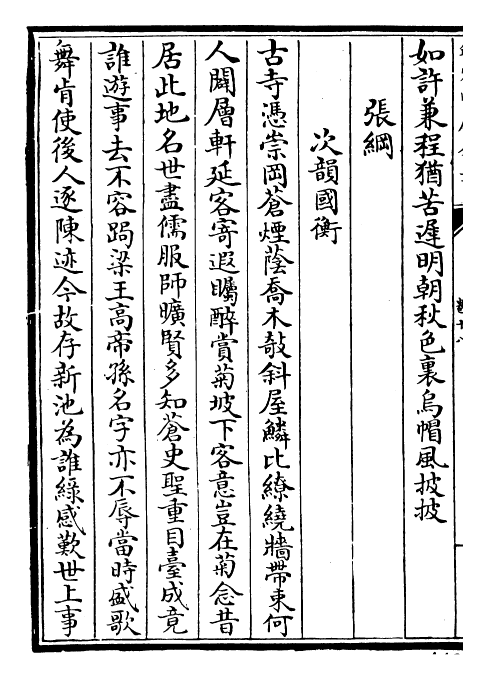 如許兼程猶苦遲明朝秋色裏烏帽風披披
張綱
次韻國衡
古寺憑崇岡蒼煙蔭喬木攲斜屋鱗比繚繞牆帶束何
人闢層軒延客寄遐矚醉賞菊坡下客意豈在菊念昔
居此地名世盡儒服師曠賢多知蒼史聖重目臺成竟
誰遊事去不容跼梁王高帝孫名字亦不辱當時盛歌
舞肯使後人逐陳迹今故存新池為誰綠感歎世上事